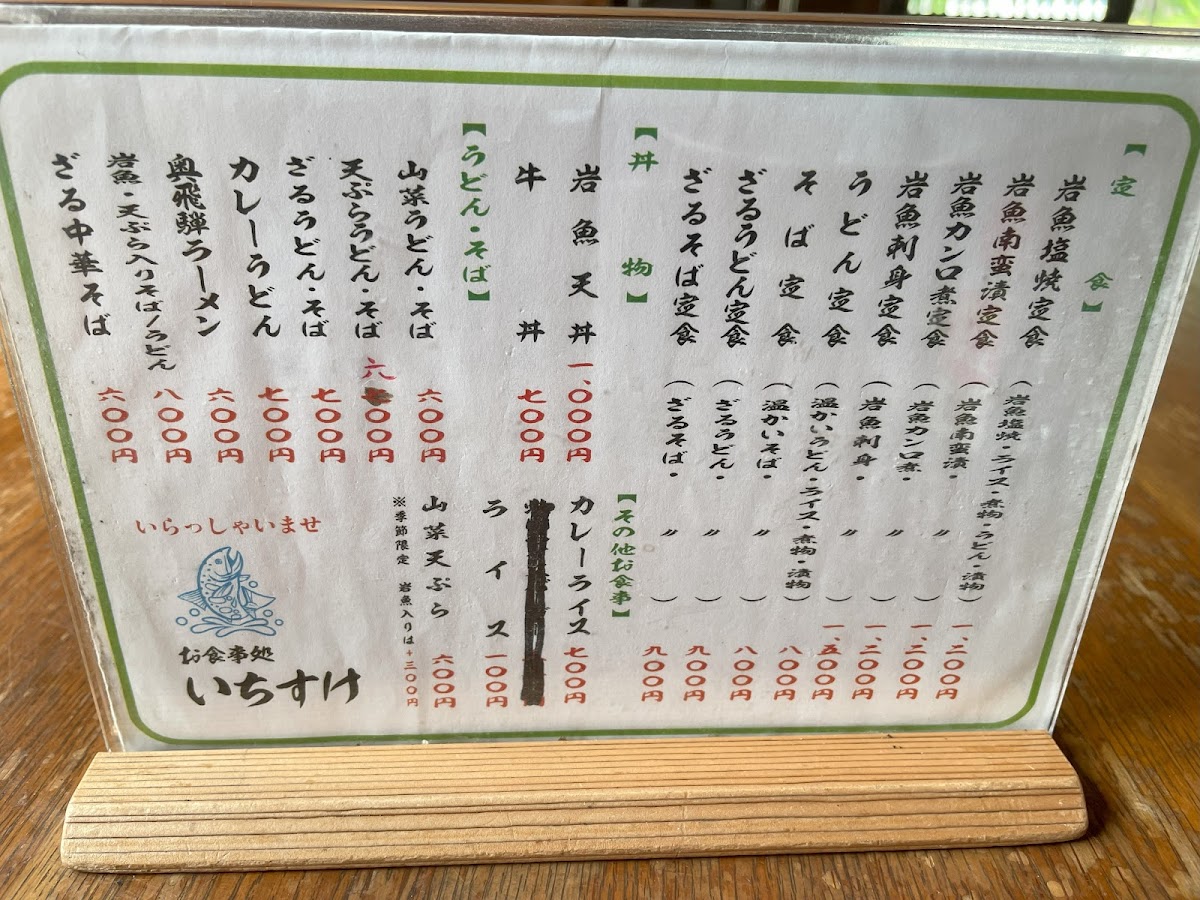 【定食】
岩魚塩焼定食（岩魚塩焼・ライス・煮物・うどん・漬物）一、二〇〇円
岩魚南蛮漬定食（岩魚南蛮漬・〃）一、二〇〇円
岩魚カンロ煮定食（岩魚カンロ煮・〃）一、二〇〇円
岩魚刺身定食（岩魚刺身・〃）一、五〇〇円
うどん定食（温かいうどん・ライス・煮物・漬物）八〇〇円
そば定食（温かいそば・〃）八〇〇円
ざるうどん定食（ざるうどん・〃）九〇〇円
ざるそば定食（ざるそば・〃）九〇〇円
【丼物】
岩魚天丼 一、〇〇〇円
牛丼 七〇〇円
【うどん・そば】
山菜うどん・そば 六〇〇円
天ぷらうどん・そば 六〇〇円
ざるうどん・そば 七〇〇円
カレーうどん 七〇〇円
奥飛騨ラーメン 六〇〇円
岩魚・天ぷら入りそば/うどん 八〇〇円
ざる中華そば 六〇〇円
【その他お食事】
カレーライス 七〇〇円
ライス 一〇〇円
山菜天ぷら 六〇〇円
※季節限定 岩魚入りは+三〇〇円
いらっしゃいませ
お食事処
いちすけ